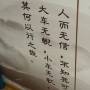 人而无信，不知其可
大车无輗，小车无
其何以行之哉